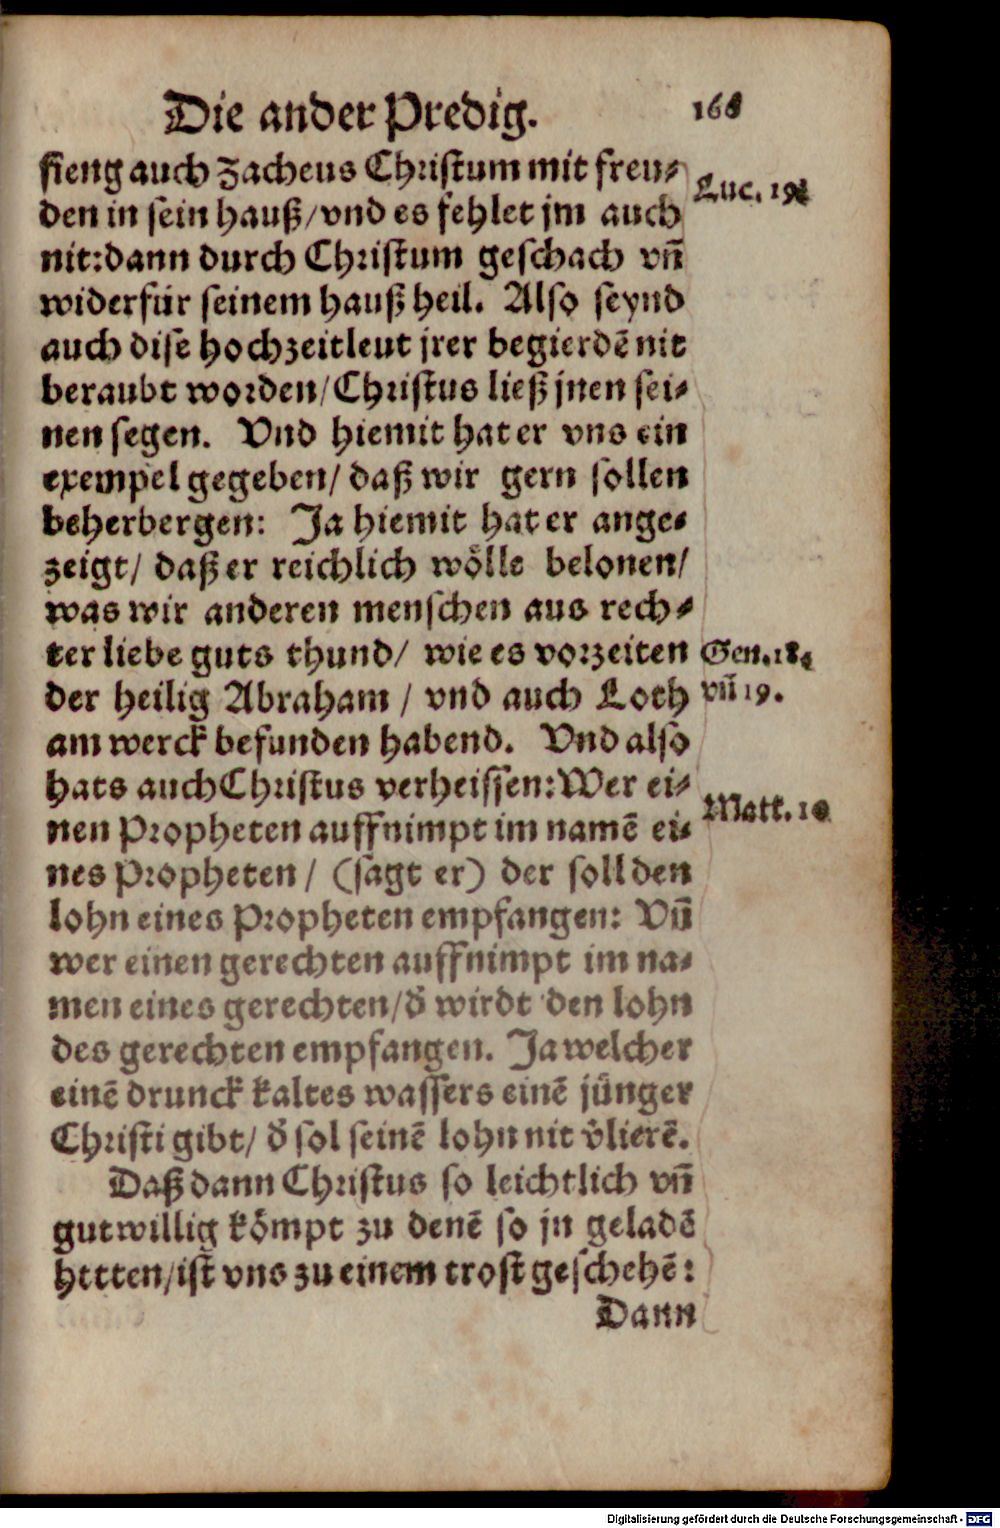 Die ander Predig. 168
fieng auch Zacheus Christum mit freu⸗
Luc. 19.
den in sein hauß/vnd es fehlet jm auch
nit:dann durch Christum geschach vñ
widerfür seinem hauß heil. Also seynd
auch dise hochzeitleut jrer begierdẽ nit
beraubt worden/Christus ließ jnen sei⸗
nen segen. Vnd hiemit hat er vns ein
exempel gegeben/ daß wir gern sollen
beherbergen: Ja hiemit hat er ange⸗
zeigt/ daß er reichlich wölle belonen/
was wir anderen menschen aus rech⸗
ter liebe guts thund/ wie es vorzeiten
Gen. 18.
der heilig Abraham / vnd auch Loth
vñ 19.
am werck befunden habend. Vnd also
hats auch Christus verheissen:Wer ei⸗
Matt. 10
nen Propheten auffnimpt im namẽ ei⸗
nes Propheten/ (sagt er) der soll den
lohn eines Propheten empfangen: Vñ
wer einen gerechten auffnimpt im na⸗
men eines gerechten/d̕ wirdt den lohn
des gerechten empfangen. Ja welcher
einẽ drunck kaltes wassers einẽ jünger
Christi gibt/ d̕ sol seinẽ lohn nit v̕lierẽ.
Daß dann Christus so leichtlich vñ
gutwillig kömpt zu denẽ so jn geladẽ
hetten/ist vns zu einem trost geschehẽ:
Dann
Digitalisierung gefördert durch die Deutsche Forschungsgemeinschaft - DFG